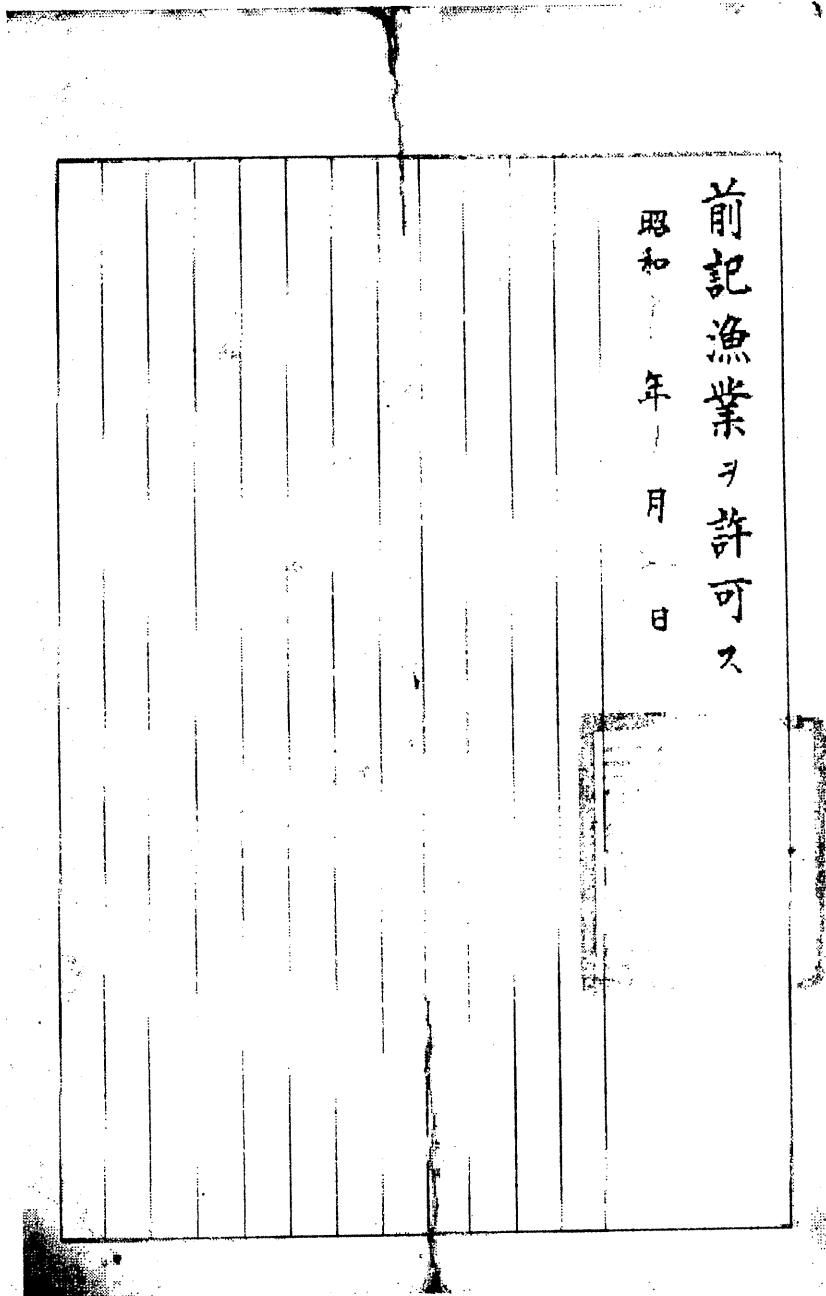 前記漁業ヲ許可ス
昭和 年 月 日